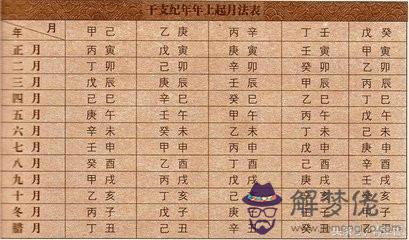 干支纪年年上起月法表
年 月 甲己 乙庚 丙辛 丁壬 戊癸
正月 丙寅 戊寅 庚寅 壬寅 甲寅
二月 丁卯 己卯 辛卯 癸卯 乙卯
三月 戊辰 庚辰 壬辰 甲辰 丙辰
四月 己巳 辛巳 癸巳 乙巳 丁巳
五月 庚午 壬午 甲午 丙午 戊午
六月 辛未 癸未 乙未 丁未 己未
七月 壬申 甲申 丙申 戊申 庚申
八月 癸酉 乙酉 丁酉 己酉 辛酉
九月 甲戌 丙戌 戊戌 庚戌 壬戌
十月 乙亥 丁亥
冬月 丙子 戊子 庚
腊月 丁丑 己丑 辛丑 癸丑 乙丑
解梦佬